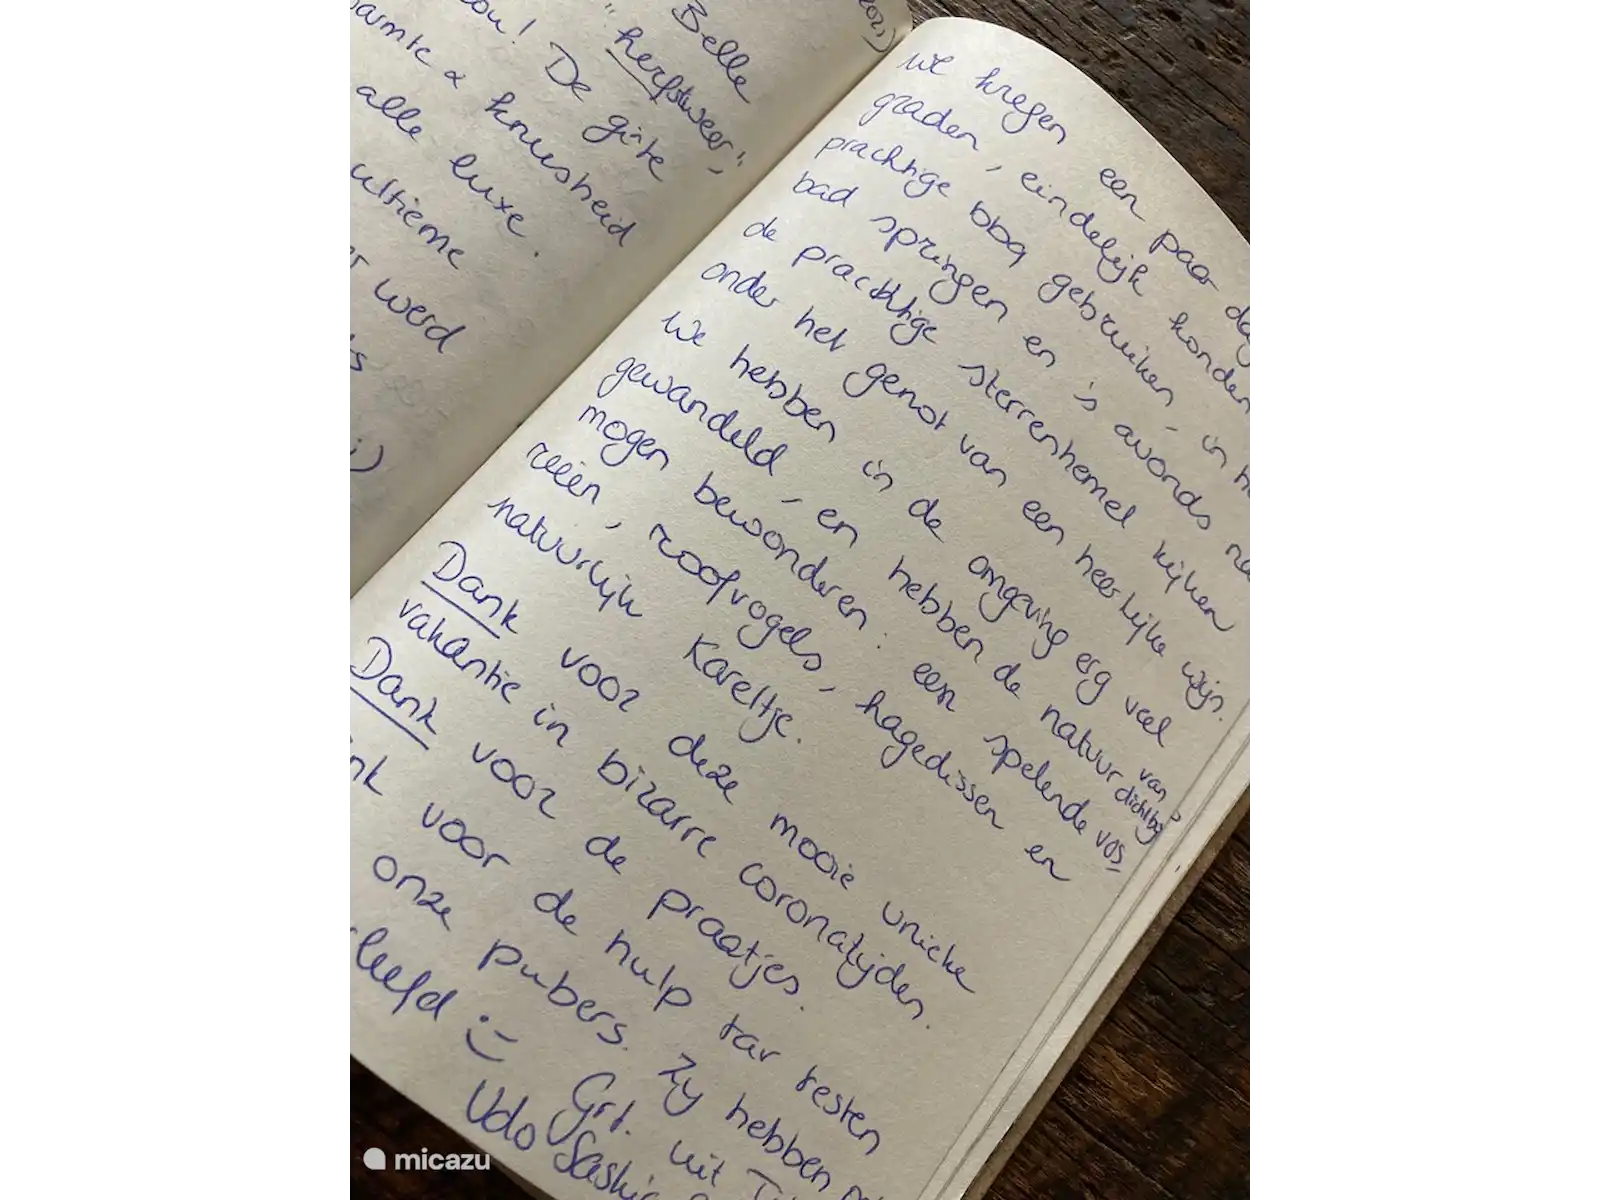 Belle
"herfstweer",
De gite
armte & knusheid
alle luxe.
ultieme
werd
We kregen een paar
graden, eindelijk konden
prachtige bbq gebruiken, in
bad springen en 's avonds
de prachtige sterrenhemel kijken
onder het genot van een heerlijke wijn.
We hebben in de omgeving erg veel
gewandeld, en hebben de natuur van dichtbij
mogen bewonderen: een spelende vos
reeën, roofvogels, hagedissen en
natuurlijk Kareltje.
Dank voor deze mooie unieke
vakantie in bizarre coronatijden.
Dank voor de praatjes.
nk voor de hulp tar resten
onze pubers. Zij hebben
leefd :-)
Grt. uit
Udo Saskia
micazu